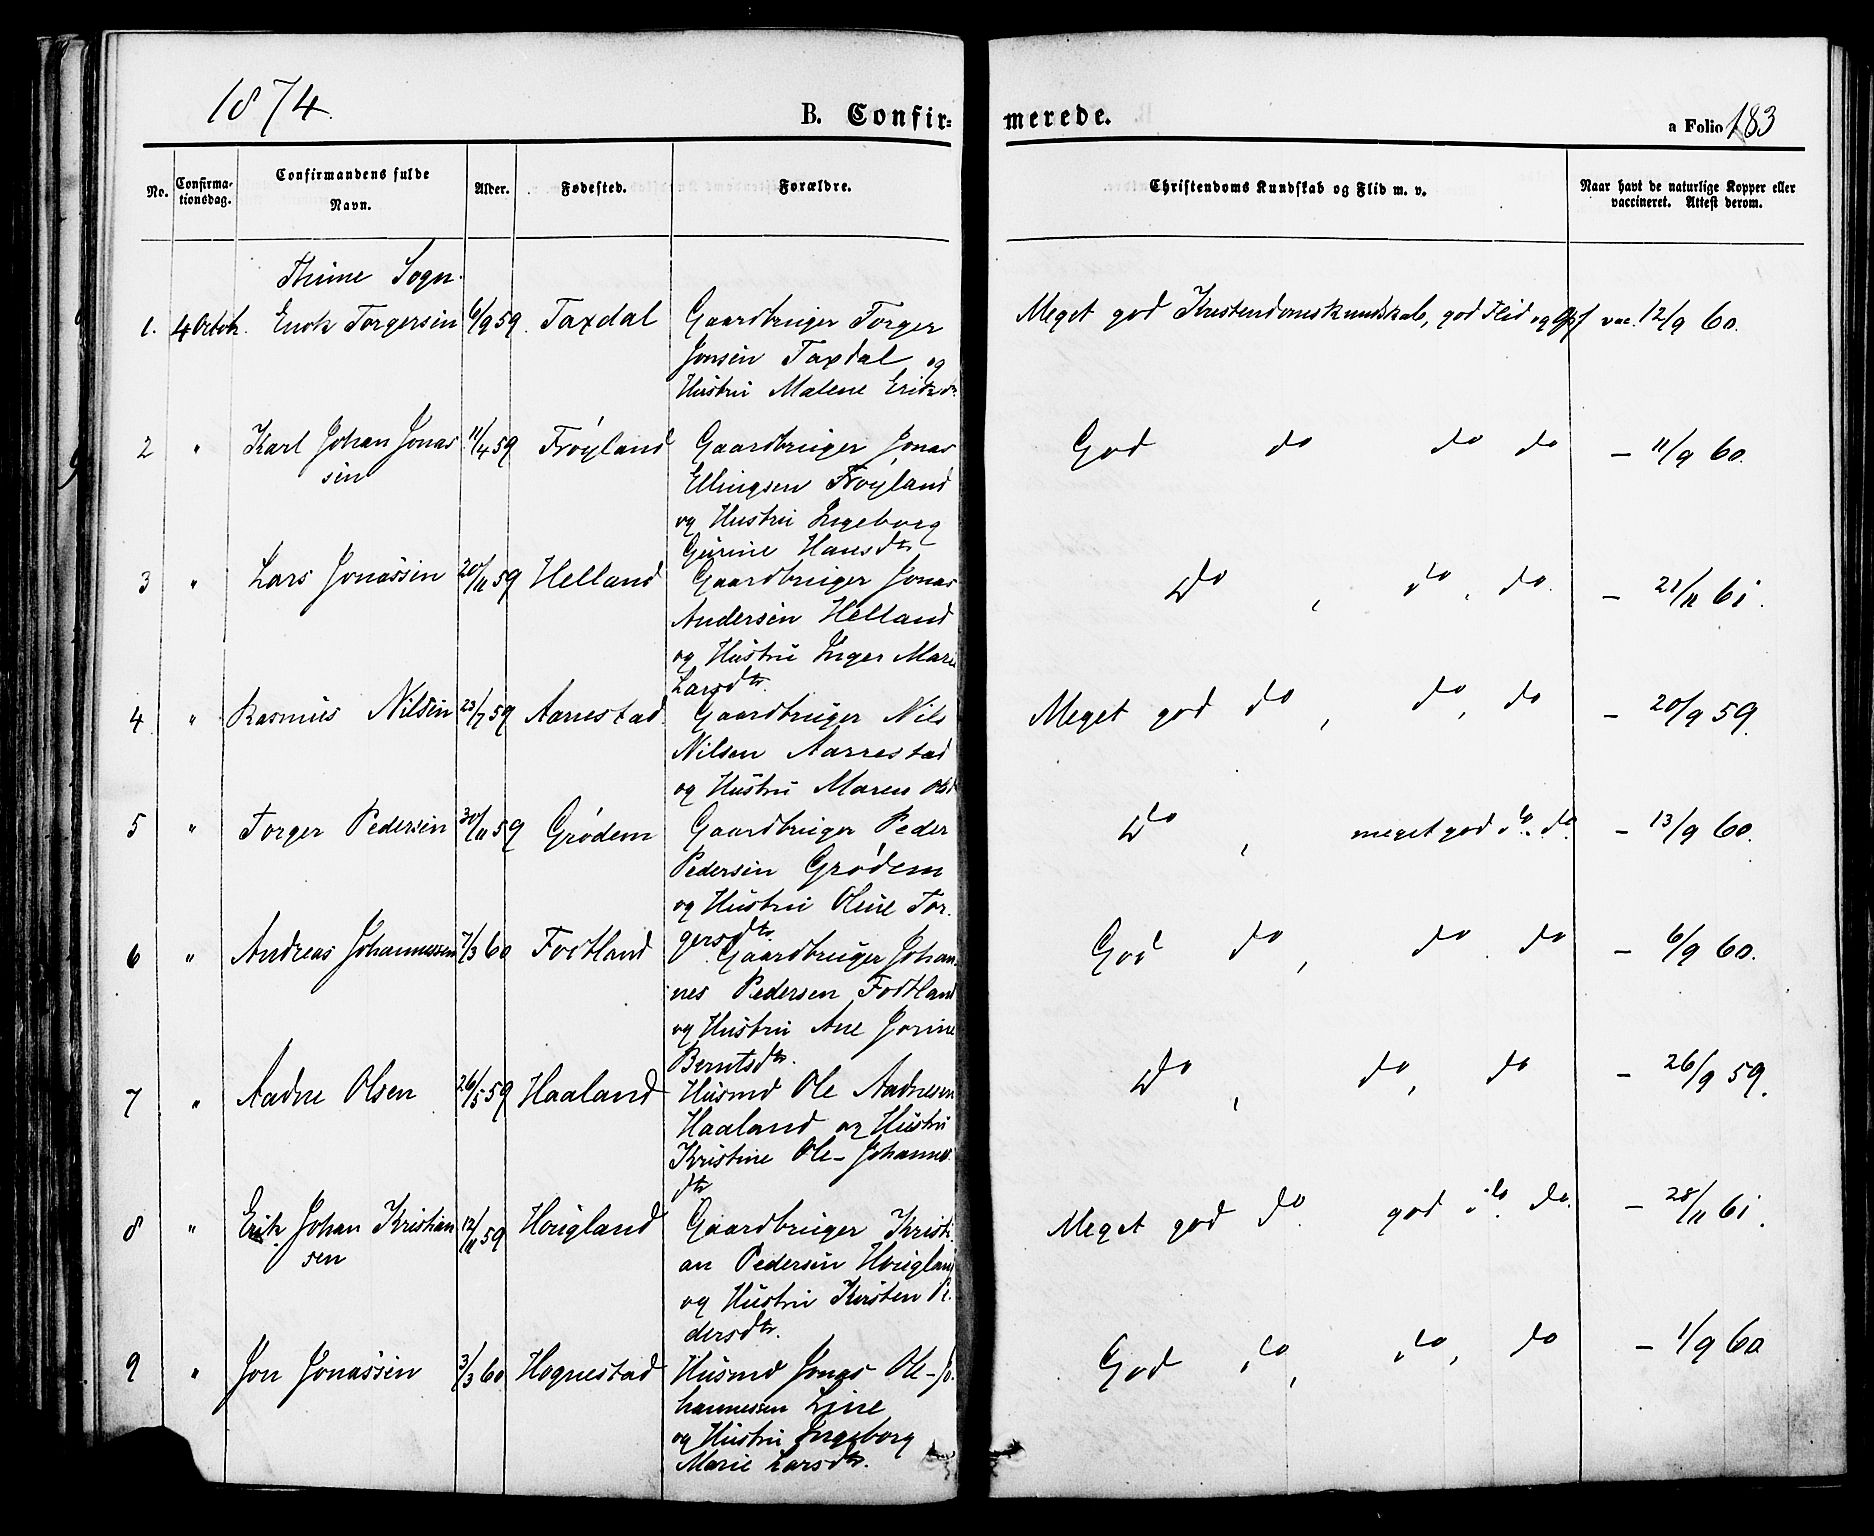 1874.
B. Confirmerede.
a Folio 183
No.
Confirmationsdag.
Confirmandens fulde Navn.
Alder.
Fødested.
Forældre.
Christendoms Kundskab og Flid m. v.
Naar havt de naturlige Kopper eller vaccineret. Attest derom.
Thime Sogn.
1. 4 Octob. Enok Torgersen 6/9 59. Taxdal Gaardbruger Torger Meget god Kristendomskundskab, god Flid og Opf vac. 12/9 60.
Jonsen Taxdal og
Hustru Malene Eriksdr.
2 " Karl Johan Jonas 11/4 59 Frøyland Gaardbruger Jonas God do do do — 11/9 60.
sen Ellingsen Frøyland
og Hustru Ingeborg
Gurine Hansdtr
3 " Lars Jonassen 20/11 59 Helland Gaardbruger Jonas Do , do , do. — 21/11 61.
Andersen Helland
og Hustru Inger Marie
Larsdtr.
4 " Rasmus Nilsen 23/7 59 Aarrestad Gaardbruger Nils Meget god do , do, do — 20/9 59.
Nilsen Aarrestad
og Hustru Maren Olsd
5 " Torger Pedersen 30/11 59 Grødem Gaardbruger Peder Do , meget god do. do. — 13/9 60.
Pedersen Grødem
og Hustru Oline Tor-
gersdtr.
6 " Andreas Johannessen 7/3 60 Fodtland Gaardbruger Johan- God do , do . do — 6/9 60.
nes Pedersen Fodtland
og Hustru Ane Jorine
Berntsdtr.
7 " Aadne Olsen 26/5 59 Haaland Husmd Ole Aadnesen Do , do, do — 26/9 59.
Haaland og Hustru
Kristine Ole-Johannes
dtr
8 " Erik Johan Kristian 12/11 59 Hougland Gaardbruger Kristi- Meget god do. god do. do. — 28/11 61.
sen an Pedersen Hougland
og Hustru Kirsten Pe-
dersdtr.
9 " Jon Jonassen 3/3 60. Hognestad Husmd Jonas Ole-Jo- God do , do , do — 1/9 60
hannessen Line
og Hustru Ingeborg
Marie Larsdtr.